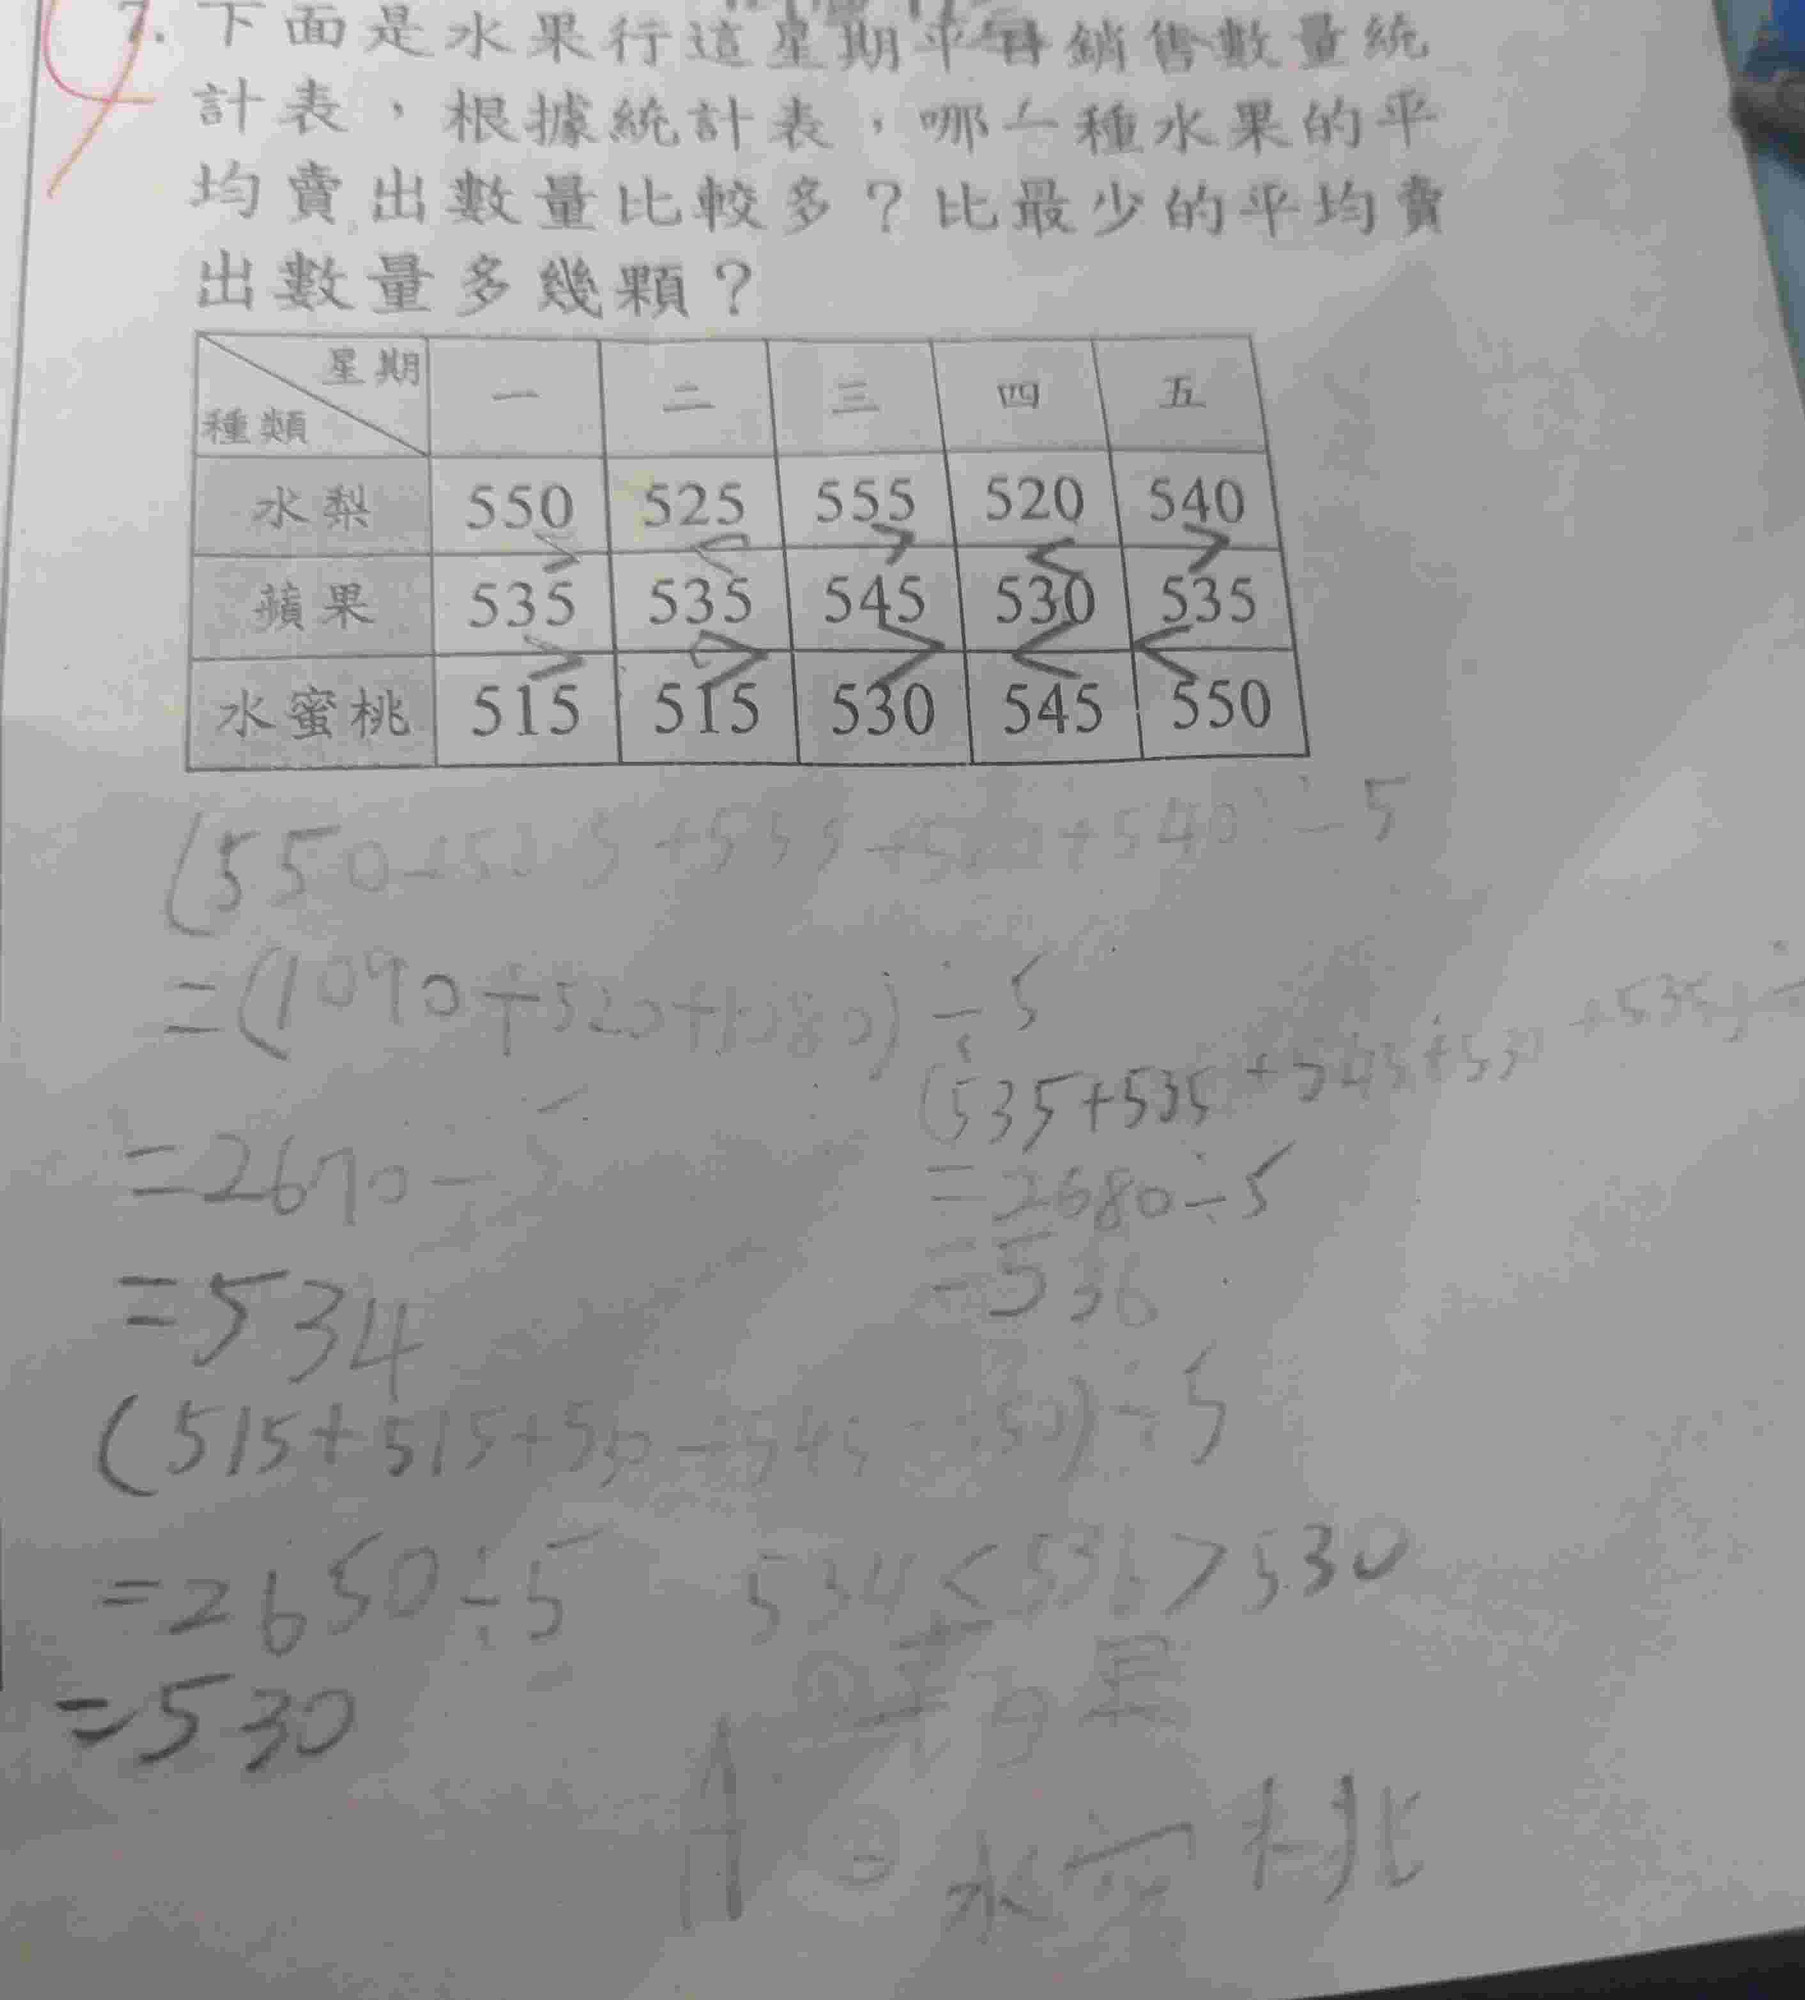 7. 下面是水果行這星期平日銷售數量統
計表，根據統計表，哪一種水果的平
均賣出數量比較多？比最少的平均賣
出數量多幾顆？
星期 一 二 三 四 五
種類
水梨 550 525 555 520 540
> < > < >
蘋果 535 535 545 530 535
> > > < <
水蜜桃 515 515 530 545 550
(550+525+555+520+540)÷5
=(1090+520+1080)÷5
=2670÷5
=534
(535+535+545+530+535)÷
=2680÷5
=536
(515+515+530+545+550)÷5
=2650÷5
=530
534<536>530
果
水 桃